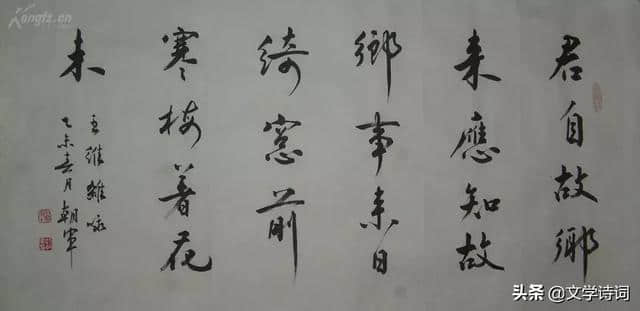 君自故鄉
来應知故
鄉事来日
綺窓前
寒梅着花
未
王維雜咏
乙未春月 朝軍
Kongfz.cn
头条 @文学诗词